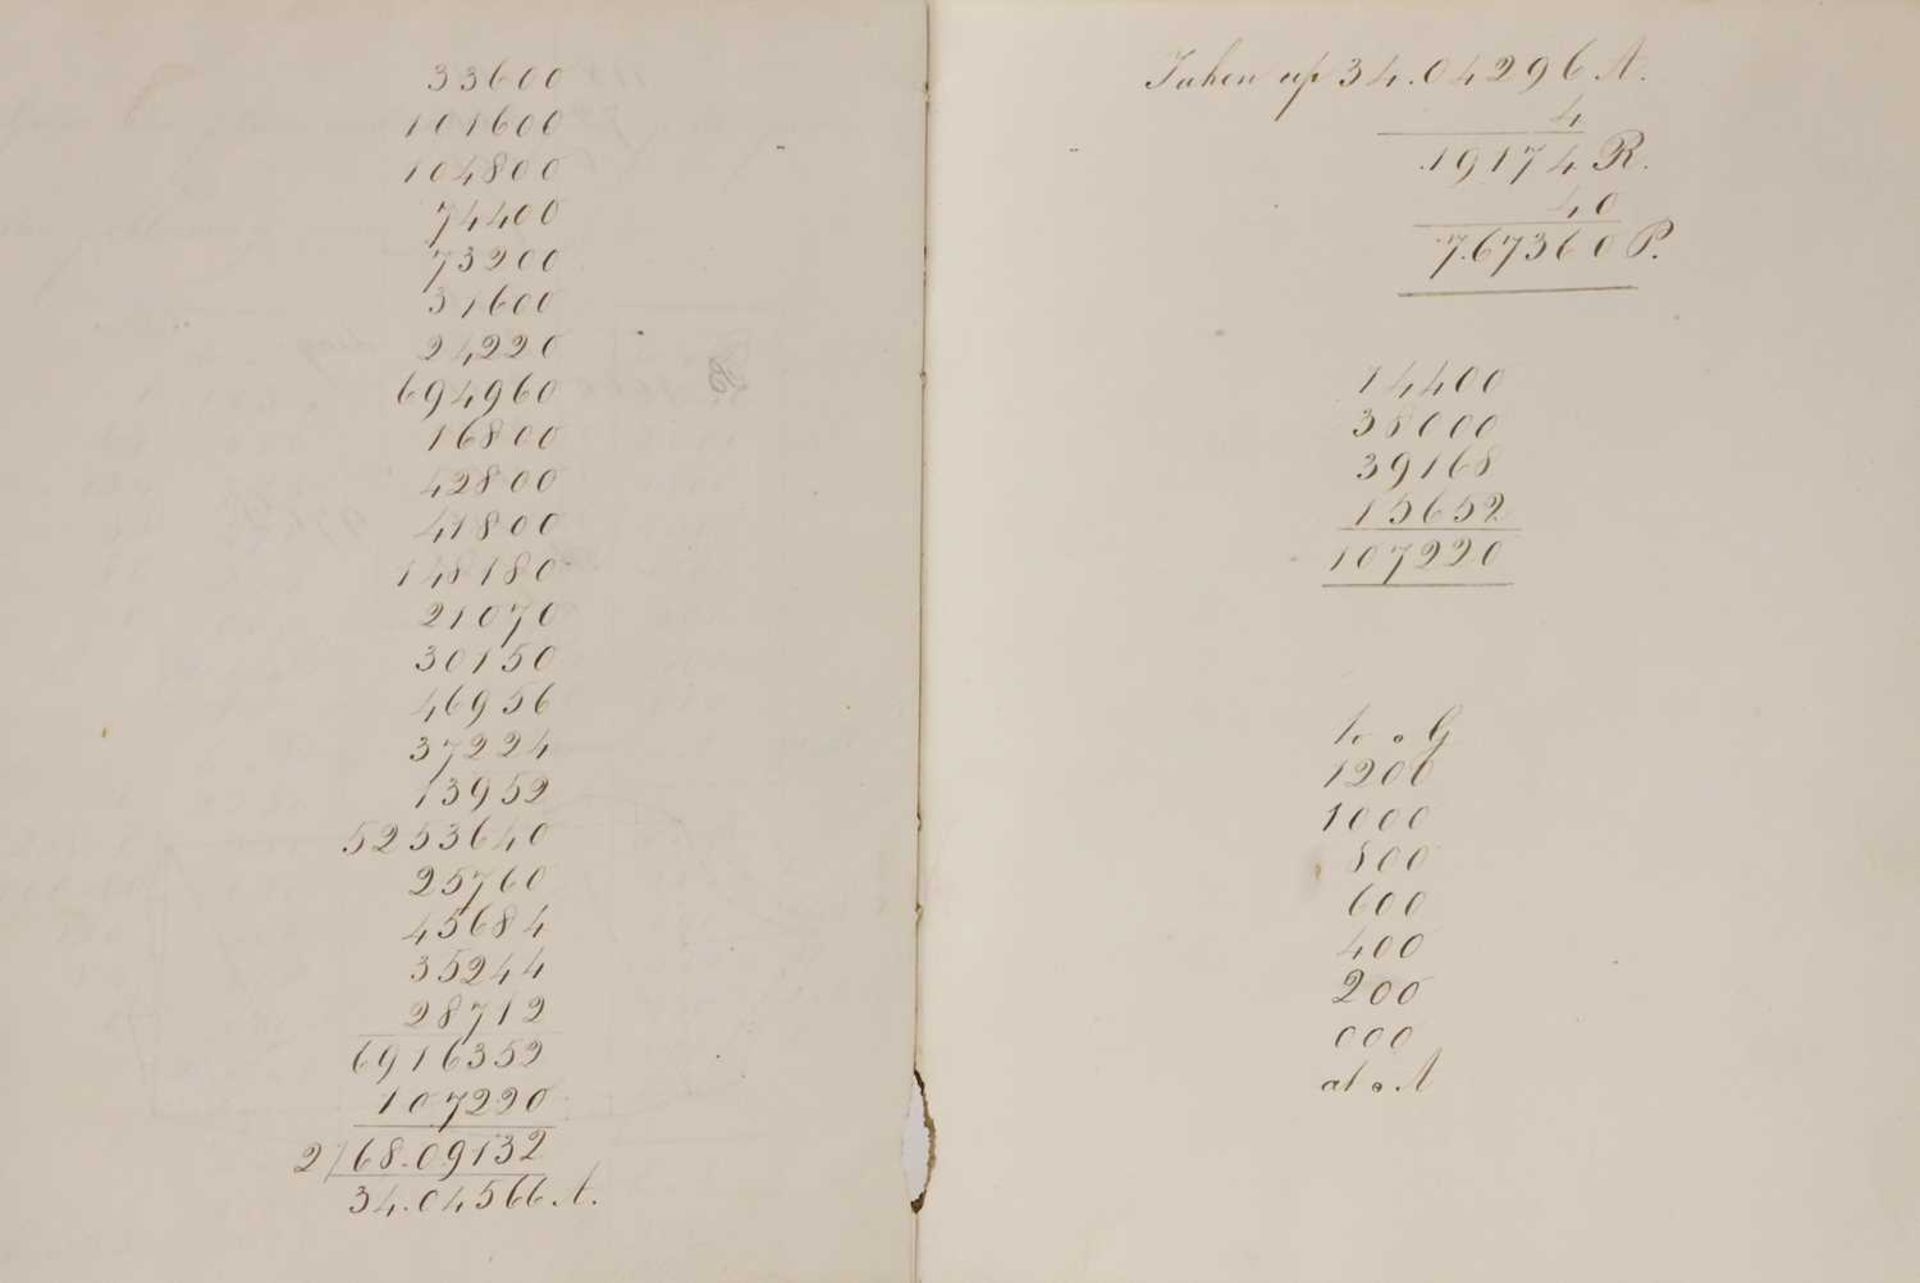 33600
101600
104800
74400
73200
31600
24220
694960
16800
42800
41800
148180
21070
30150
46956
37224
13952
5253640
25760
45684
35244
28712
6916352
107220
2/68.09132
34.04566 A.
Taken up 34.04296 A.
4
.19174 R.
40
7.67360 P.
14400
38000
39168
15652
107220
to . G
1200
1000
800
600
400
200
000
at . A